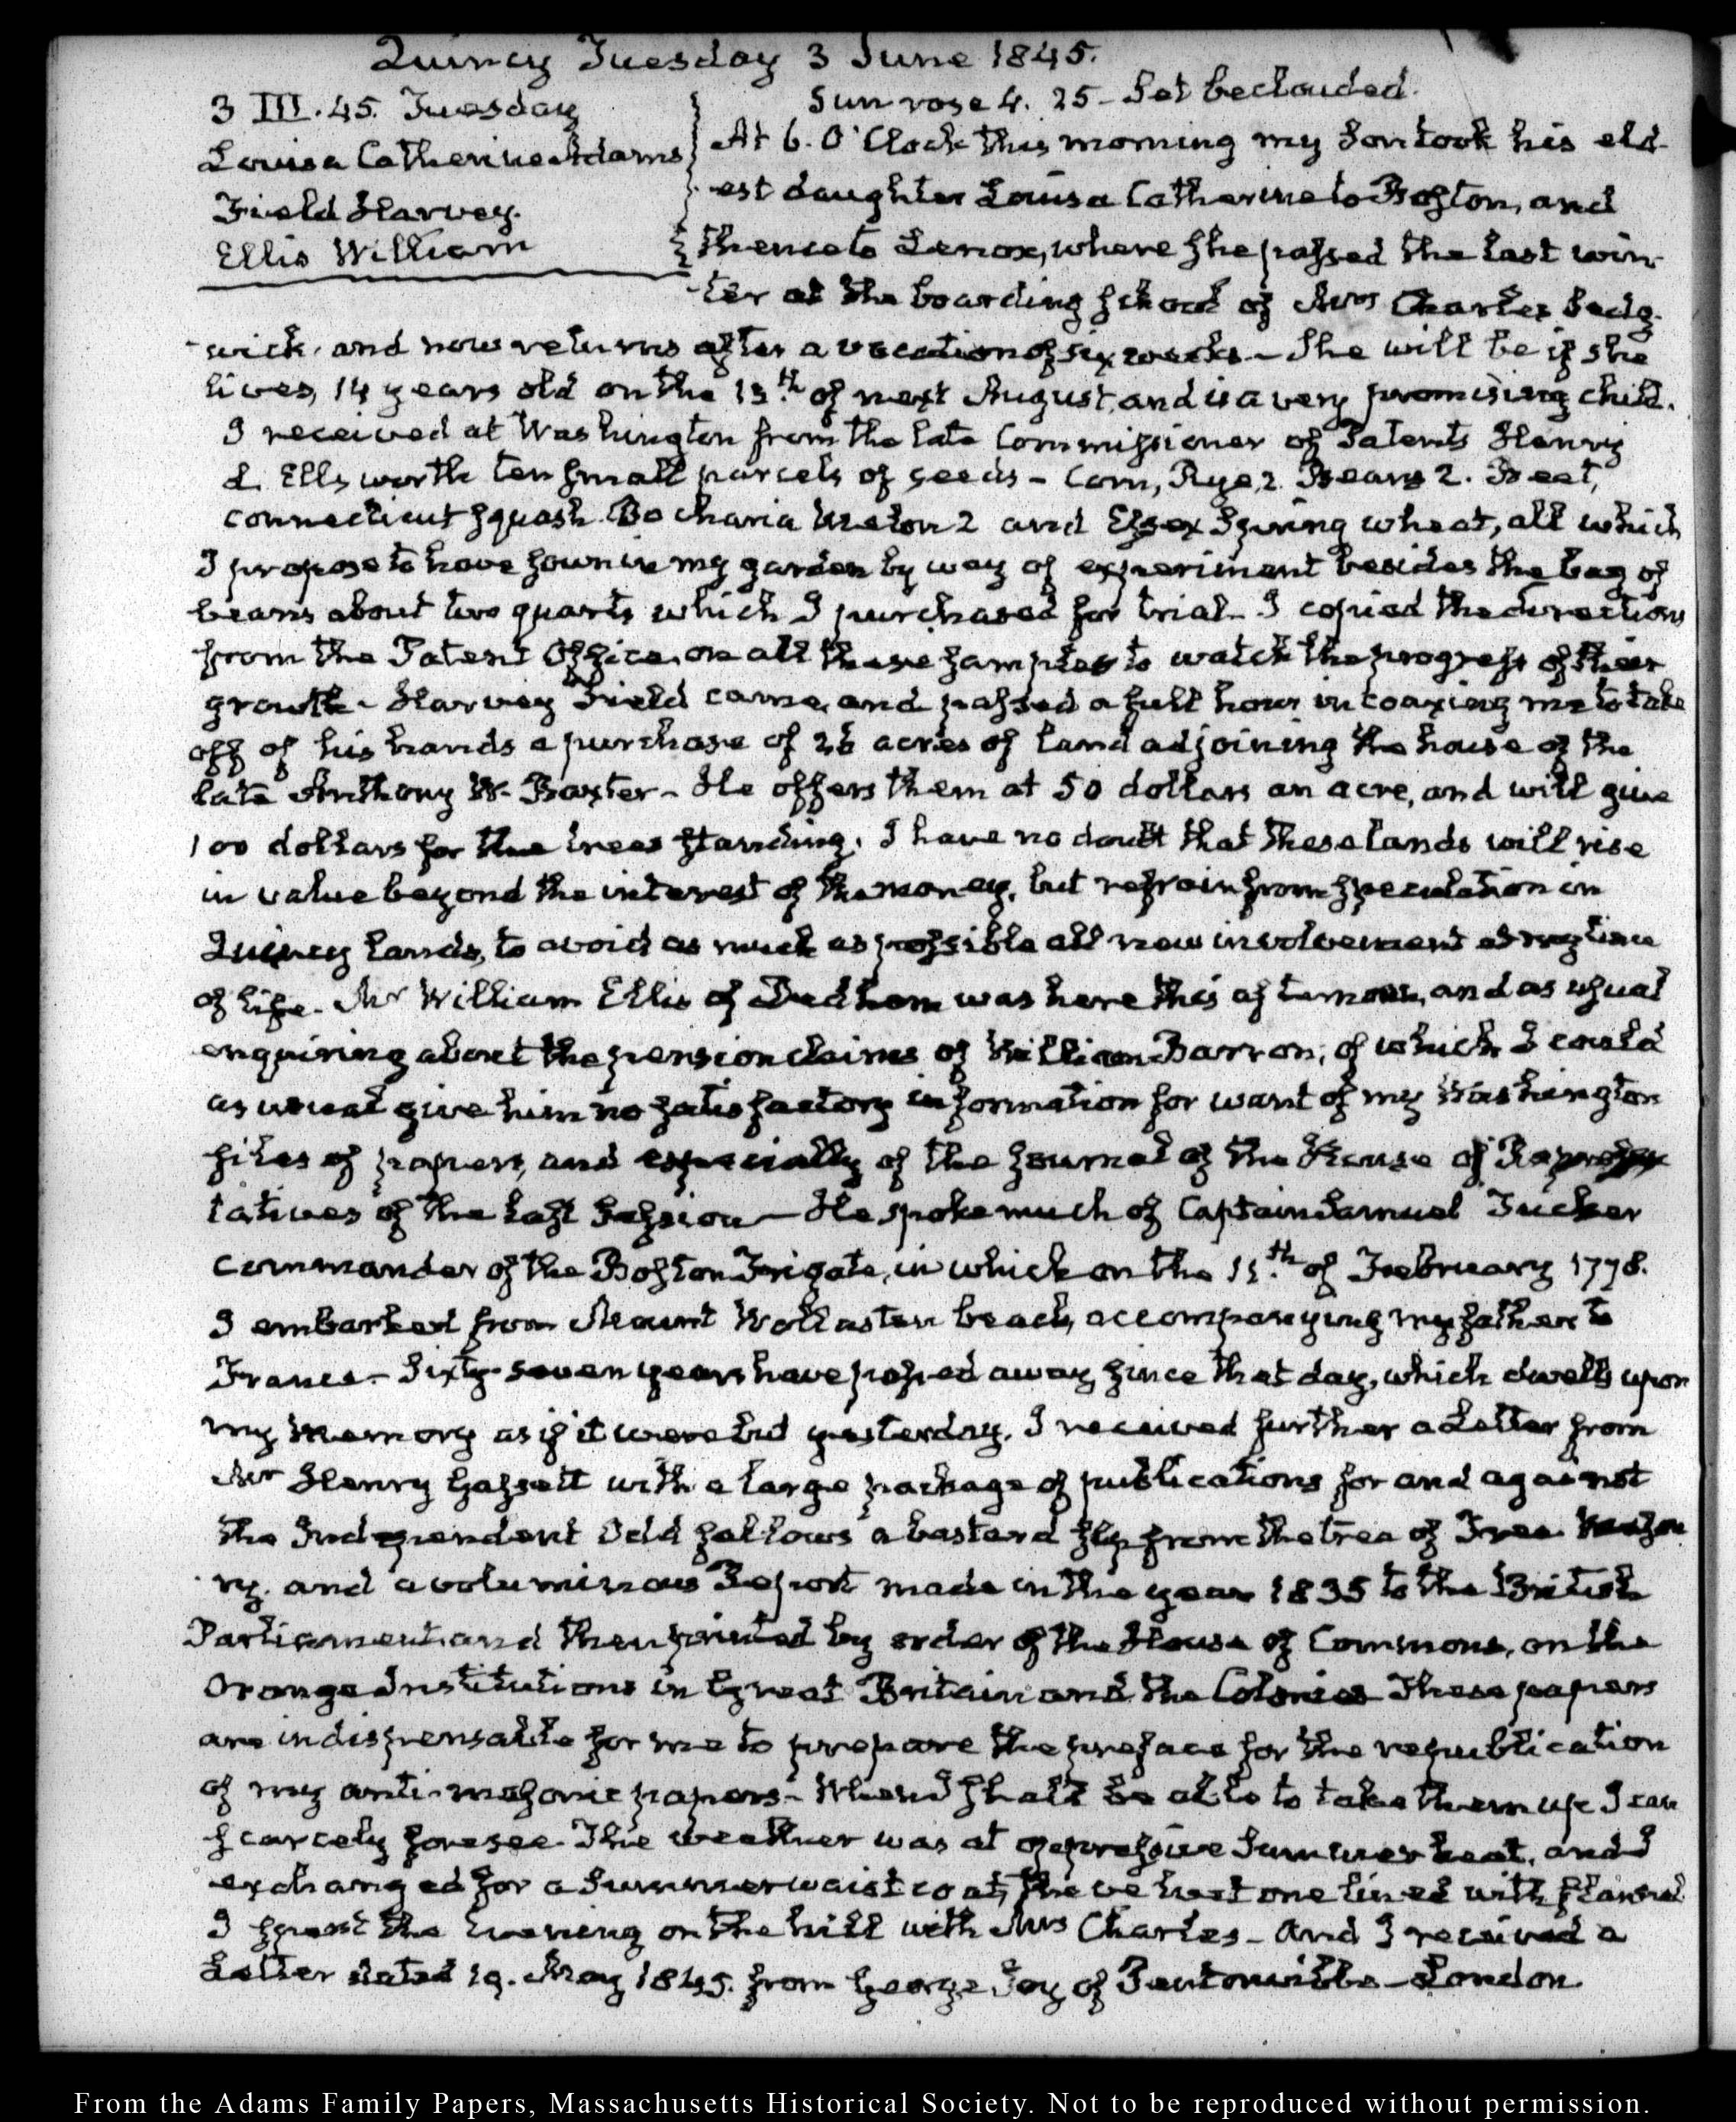 Quincy Tuesday 3 June 1845.
3 III. 45. Tuesday
Louisa Catherine Adams
Field Harvey.
Ellis William
Sun rose 4. 25 - Set beclouded.
At 6. O'Clock this morning my Son took his eld-
est daughter Louisa Catherine to Boston, and
thence to Lenox, where she passed the last win-
-ter at the boarding school of Mrs Charles Sedg-
-wick, and now returns after a vacation of six weeks - She will be if she
lives, 14 years old on the 13th of next August, and is a very promising child.
I received at Washington from the late Commissioner of Patents Henry
L. Ellsworth ten small parcels of seeds - Corn, Rye, 2. Beans 2. Beet,
Connecticut squash. Bocharia Melon 2 and Essex Spring wheat, all which
I propose to have sown in my garden by way of experiment besides the bag of
beans about two quarts which I purchased for trial - I copied the directions
from the Patent Office, on all these samples to watch the progress of their
growth - Harvey Field came, and passed a full hour in coaxing me to take
off of his hands a purchase of 26 acres of land adjoining the house of the
late Anthony W. Baxter - He offers them at 50 dollars an acre, and will give
100 dollars for the trees standing. I have no doubt that these lands will rise
in value beyond the interest of the money, but refrain from speculation in
Quincy lands, to avoid as much as possible all new involvement at my time
of life - Mr William Ellis of Dedham was here this afternoon, and as usual
enquiring about the pension claims of William Barron, of which I could
as usual give him no satisfactory information for want of my Washington
files of papers, and especially of the Journal of the House of Represen
tatives of the last Session - He spoke much of Captain Samuel Tucker
Commander of the Boston Frigate, in which on the 13th of February 1778.
I embarked from Mount Wollaston beach, accompanying my father to
France - Sixty-seven years have passed away since that day, which dwells upon
my memory as if it were but yesterday. I received further a Letter from
Mr Henry Gassett with a large package of publications for and against
the Independent Odd fellows a bastard slip from the tree of Free Mason
ry. and a voluminous Report made in the year 1835 to the British
Parliament and then printed by order of the House of Commons, on the
Orange Institutions in Great Britain and the Colonies These papers
are indispensable for me to prepare the preface for the republication
of my anti-masonic papers - When I shall be able to take them up I can
scarcely foresee. The weather was at oppressive Summer heat, and I
exchanged for a Summer waistcoat, the velvet one lined with flannel
I spent the Evening on the hill with Mrs Charles - And I received a
Letter dated 19. May 1845. from George Joy of Pentonville - London
From the Adams Family Papers, Massachusetts Historical Society. Not to be reproduced without permission.